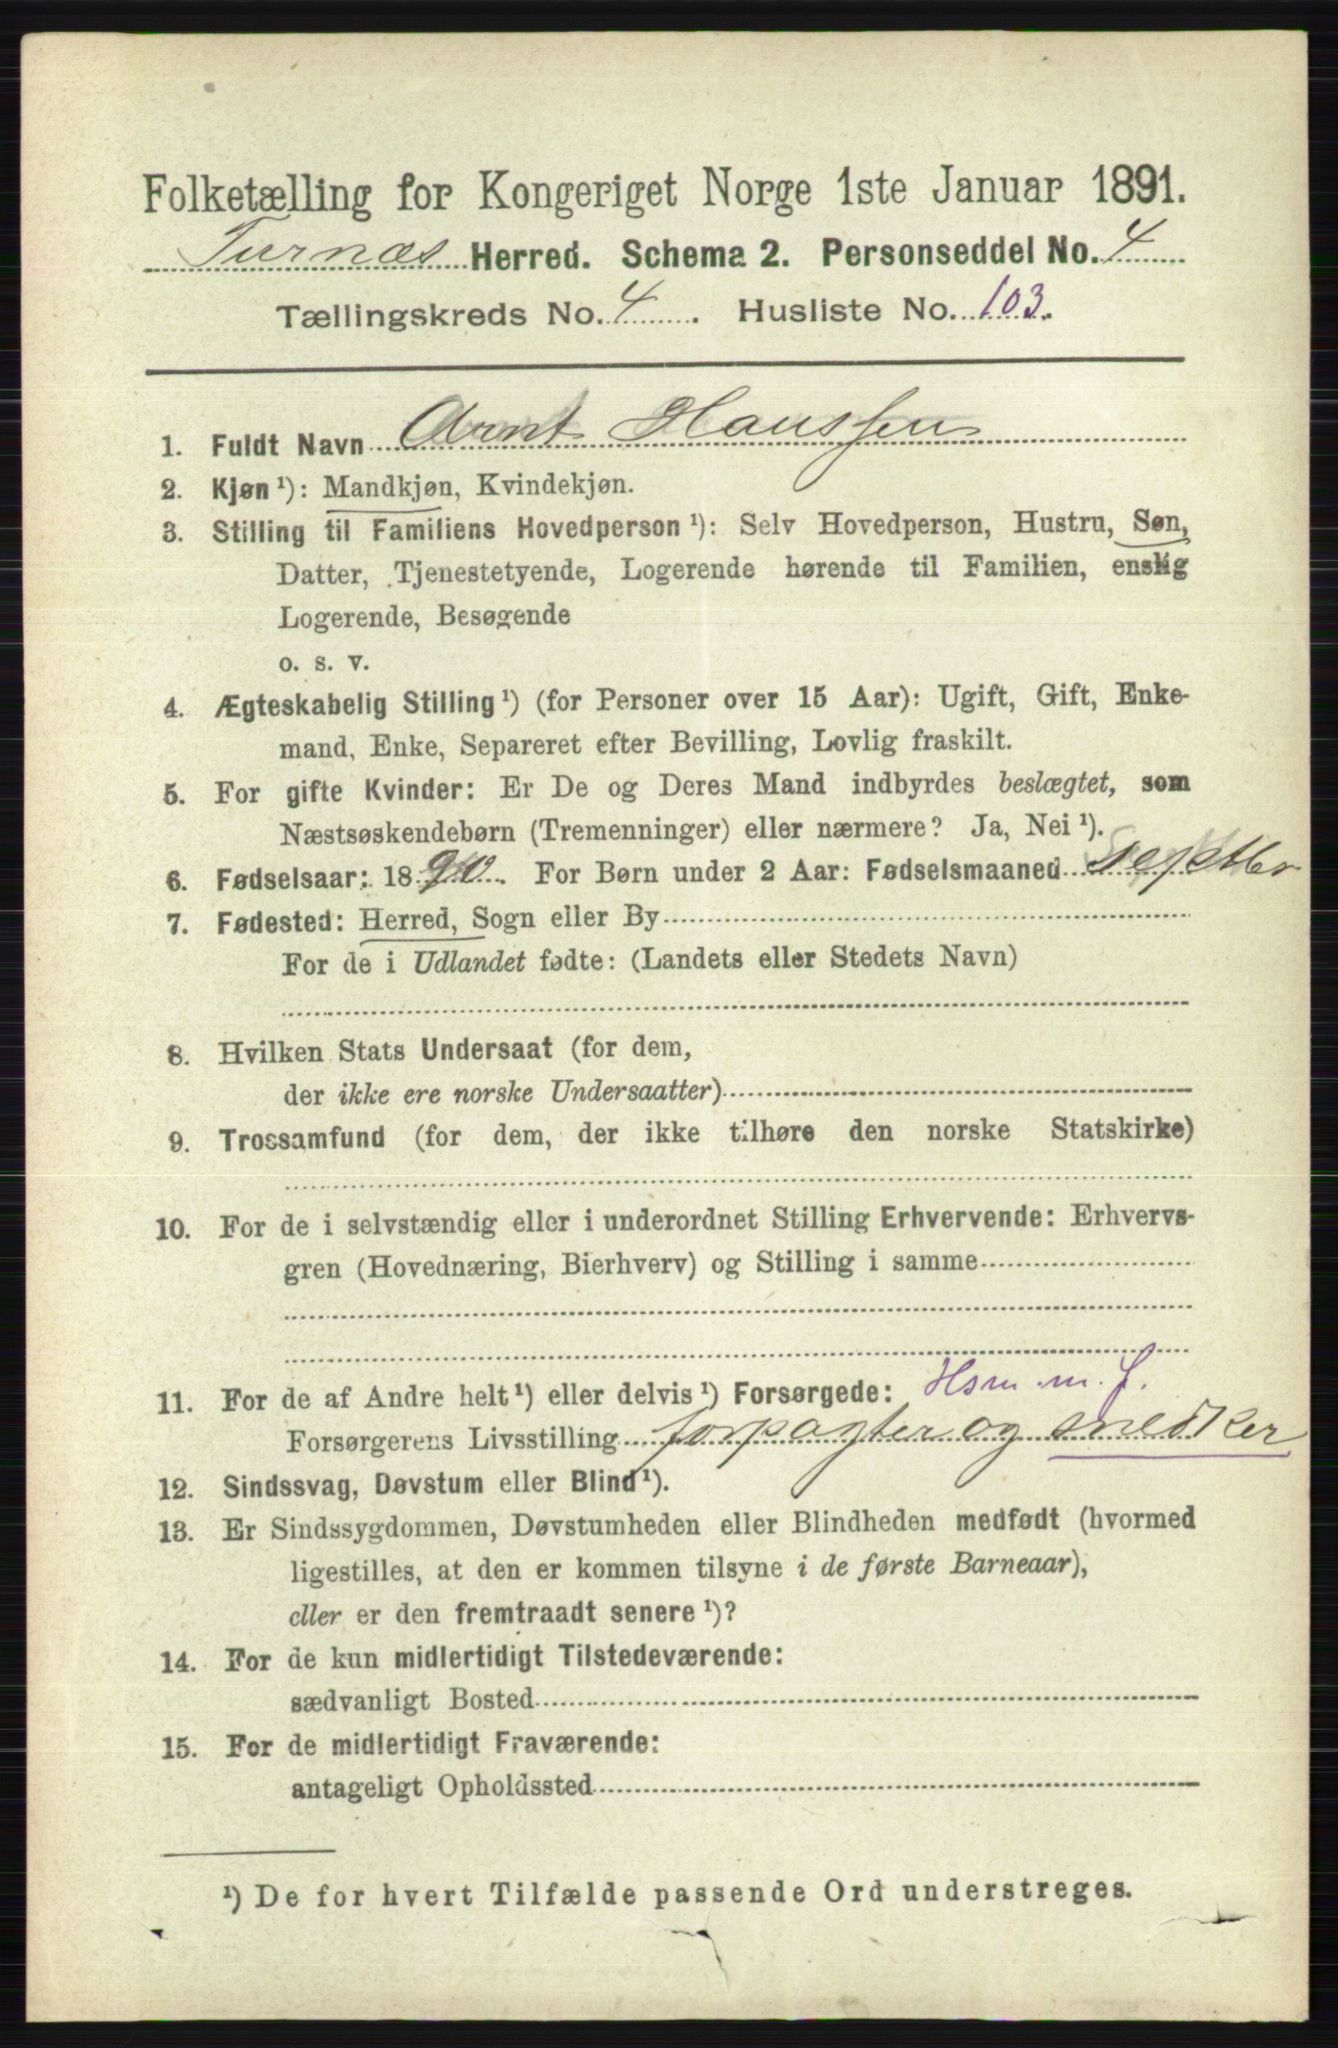 Folketælling for Kongeriget Norge 1ste Januar 1891.
Furnæs Herred. Schema 2. Personseddel No. 4
Tællingskreds No. 4. Husliste No. 103.
1. Fuldt Navn Arnt Hanssen
2. Kjøn ¹): Mandkjøn, Kvindekjøn.
3. Stilling til Familiens Hovedperson ¹): Selv Hovedperson, Hustru, Søn,
Datter, Tjenestetyende, Logerende hørende til Familien, enslig
Logerende, Besøgende
o. s. v.
4. Ægteskabelig Stilling ¹) (for Personer over 15 Aar): Ugift, Gift, Enke-
mand, Enke, Separeret efter Bevilling, Lovlig fraskilt.
5. For gifte Kvinder: Er De og Deres Mand indbyrdes beslægtet, som
Næstsøskendebørn (Tremenninger) eller nærmere? Ja, Nei ¹).
6. Fødselsaar: 1890. For Børn under 2 Aar: Fødselsmaaned septbr
7. Fødested: Herred, Sogn eller By
For de i Udlandet fødte: (Landets eller Stedets Navn)
8. Hvilken Stats Undersaat (for dem,
der ikke ere norske Undersaatter)
9. Trossamfund (for dem, der ikke tilhøre den norske Statskirke)
10. For de i selvstændig eller i underordnet Stilling Erhvervende: Erhvervs-
gren (Hovednæring, Bierhverv) og Stilling i samme
11. For de af Andre helt ¹) eller delvis ¹) Forsørgede: Hsm. m. j.
Forsørgerens Livsstilling forpagter og snedker
12. Sindssvag, Døvstum eller Blind ¹).
13. Er Sindssygdommen, Døvstumheden eller Blindheden medfødt (hvormed
ligestilles, at den er kommen tilsyne i de første Barneaar),
eller er den fremtraadt senere ¹)?
14. For de kun midlertidigt Tilstedeværende:
sædvanligt Bosted
15. For de midlertidigt Fraværende:
antageligt Opholdssted
¹) De for hvert Tilfælde passende Ord understreges.